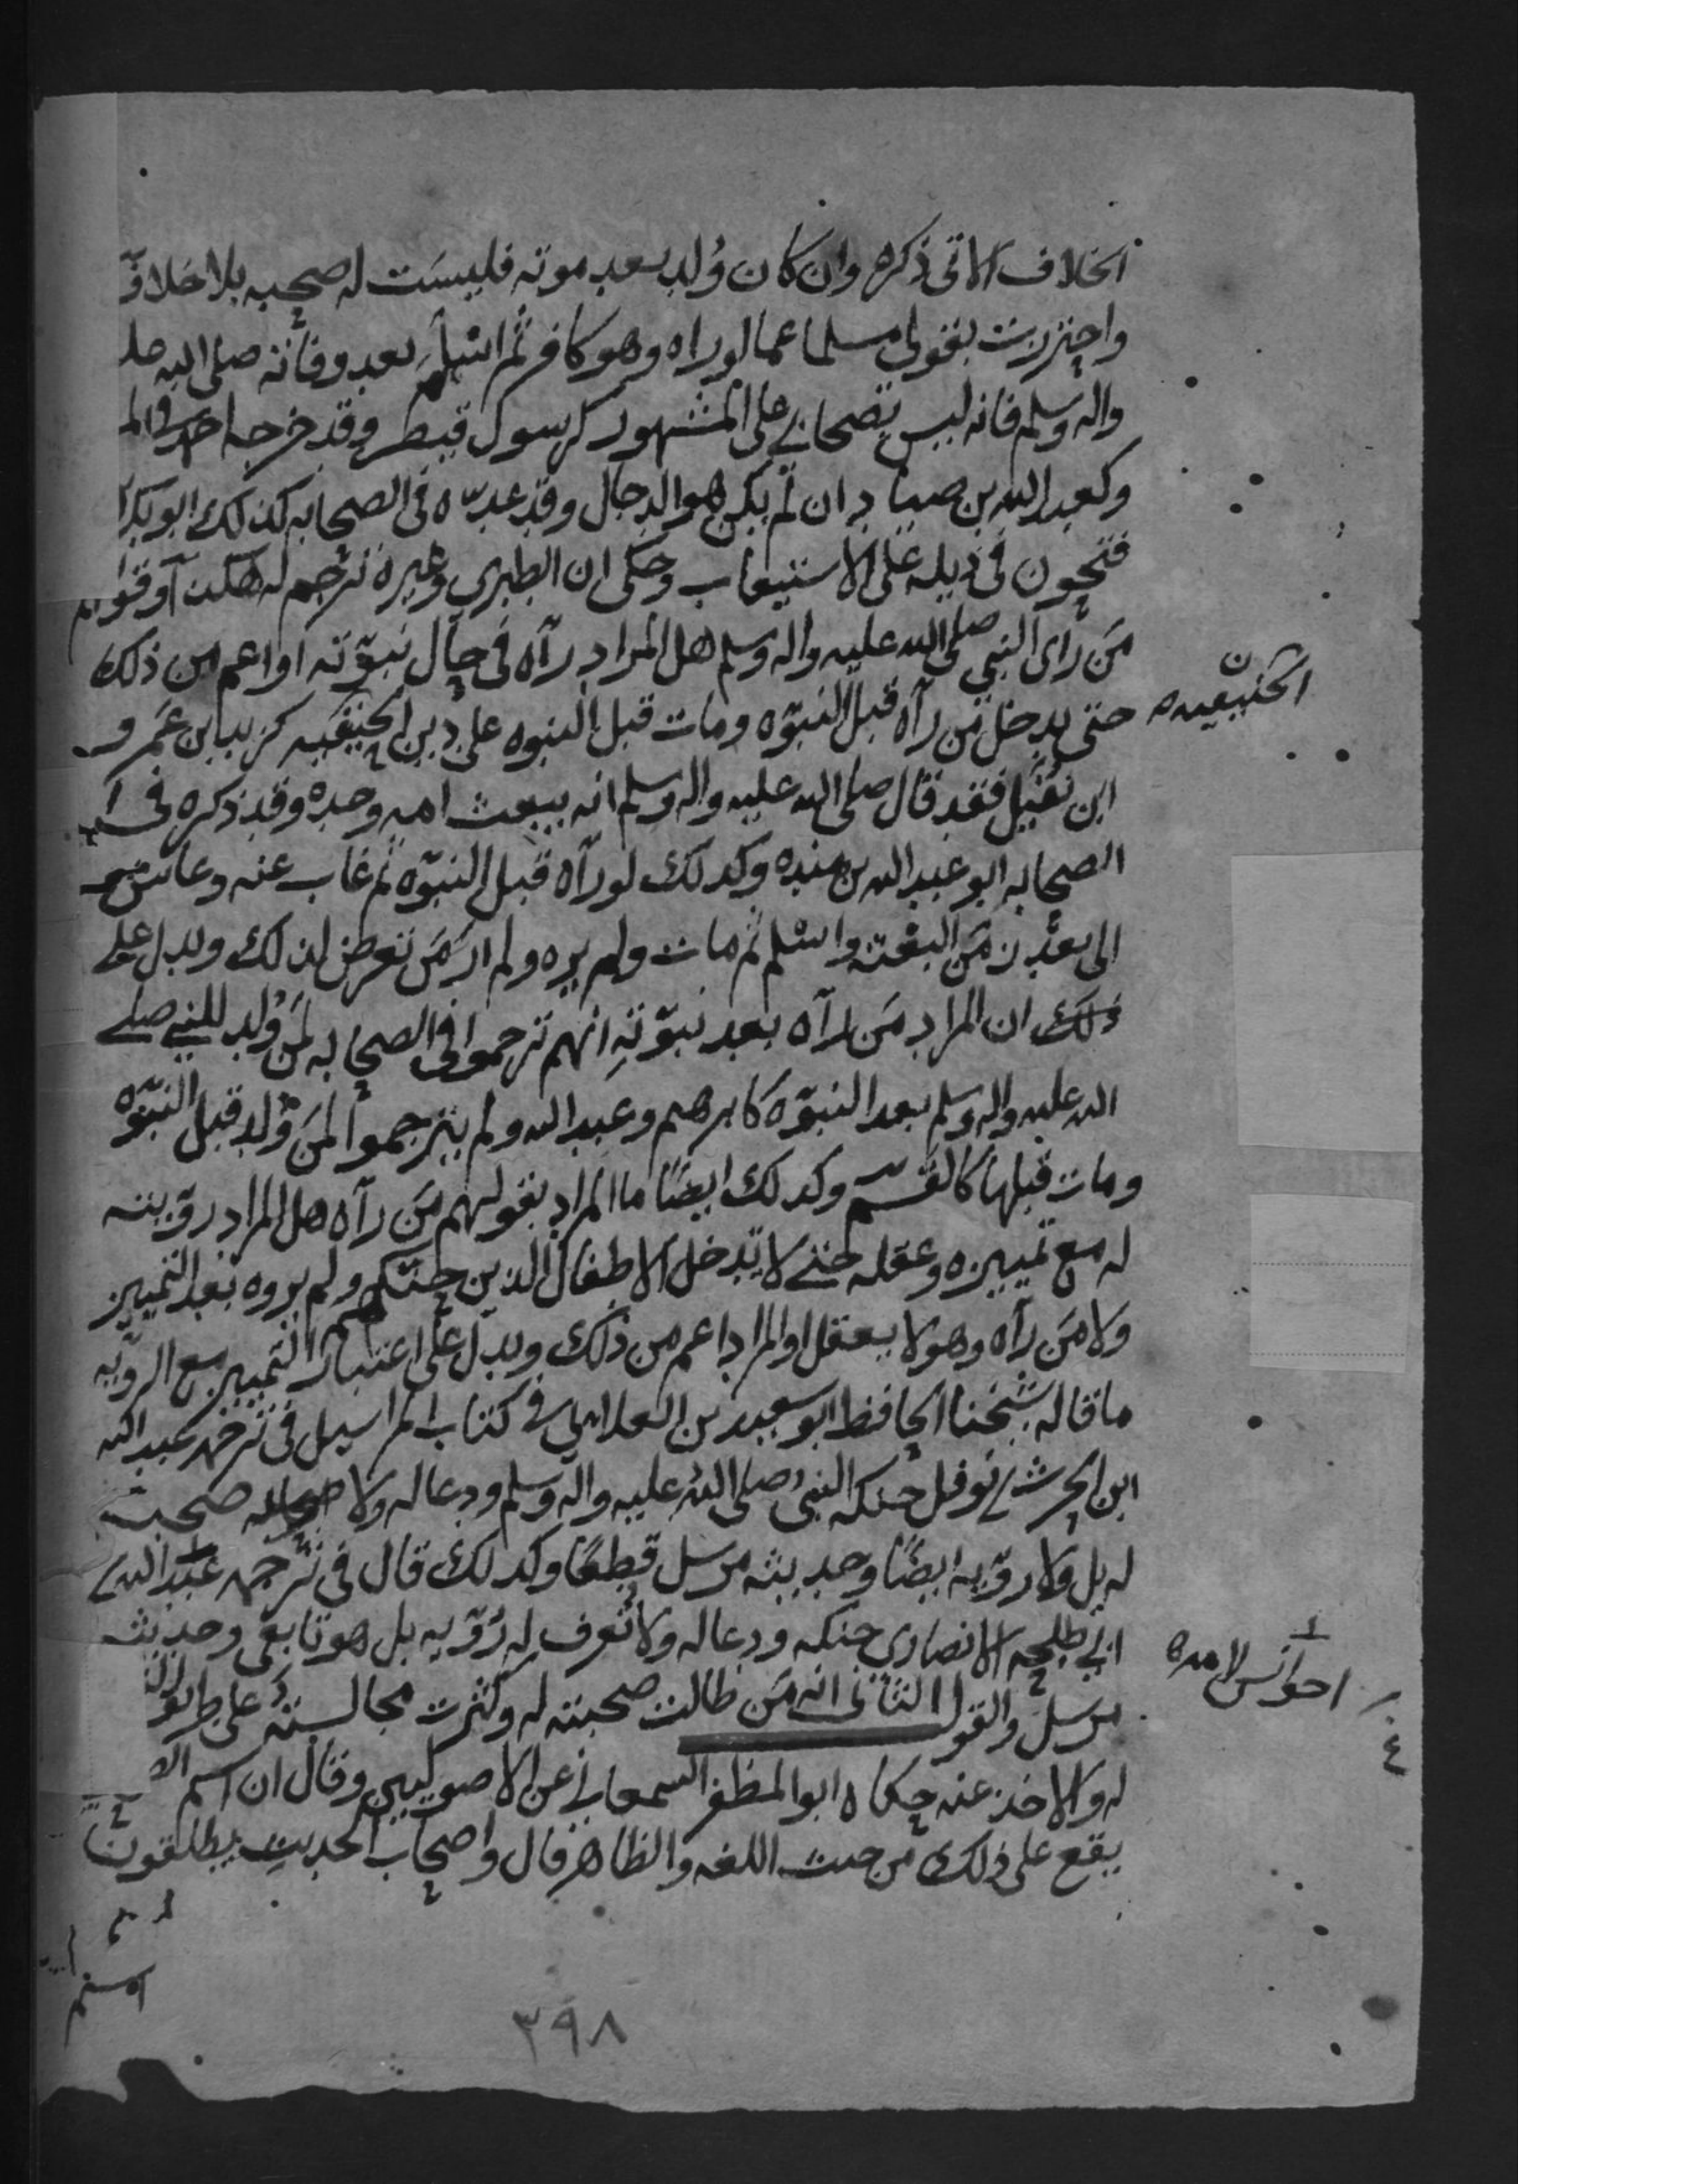 الخلاف الاتى ذكره وان كان وُلد بعد موته فليسَت له صحبه بلا خلاف
واحترزت بقولى مسلما عما لو راه وهو كافر ثم اسلم بعد وفاته صلى الله عليه
واله وسلم فانه ليس بصحابي على المشهور كرسول قيصر وقد خرجه احمد في الم
وكعبد الله بن صياد ان لم يكن هو الدجال وقد عدّه فى الصحابه كذلك ابو بكر
فتحون فى ذيله على الاستيعاب وحكى ان الطبري وغيره ترجم له هكذا وقولهم
مَن رأى النبي صلى الله عليه واله وسلم هل المراد رآه فى حال نبوّته او اعم من ذلك
حتى يدخل من رآه قبل النبوّه ومات قبل النبوه على دين الحنيفيه كزيد بن عَمرو
ابن نفيل فقد قال صلى الله عليه واله وسلم انه يبعث امه وحده وقد ذكره فى
الصحابه ابو عبد الله بن منده وكذلك لو رآه قبل النبوّه ثم غاب عنه وعاش
الى بعد زمَن البعثه واسلم ثم مات ولم يره ولم ار مَن تعرض لذلك ويدل على
ذلك ان المراد مَن رآه بعد نبوّتهِ انهم ترجموا فى الصحابه لمَن وُلد للنبي صلى
الله عليه واله وسلم بعد النبوّه كابرهيم وعبد الله ولم يترجموا لمَن وُلد قبل النبوّه
ومات قبلها كالقسم وكذلك ايضًا ما المراد بقولهم مَن رآه هل المراد روّيته
له مع تمييزه وعقله حتى لا يدخل الاطفال الذين حنكهم ولم يروه بعد التمييز
ولا مَن رآه وهو لا يعقل او المراد اعم من ذلك ويدل على اعتبار التمييز مع الروّيه
ما قاله شيخنا الحافظ ابو سعيد بن العلائي في كتاب المراسيل فى ترجمة عبد الله
ابن الحرث بن نوفل حنكه النبي صلى الله عليه واله وسلم ودعا له ولا صحبت
له بل ولا روّيه ايضًا وحديثه مرسل قطعًا وكذلك قال فى ترجمه عبد الله بن
ابي طلحه الانصاري حنكه ودعا له ولا تُعرف له رُوّيه بل هو تابعي وحديثه
مرسل والقول الثانى انه مَن طالت صحبته له وكثرت مجالسته على طريق
له والاخذ عنه حكاه ابو المظفر السمعاني عن الاصوليين وقال ان اسم
يقع على ذلك من حيث اللغه والظاهر قال واصحاب الحديث يطلقون
الحنيفيه
اخو انس لامه
٣٩٨